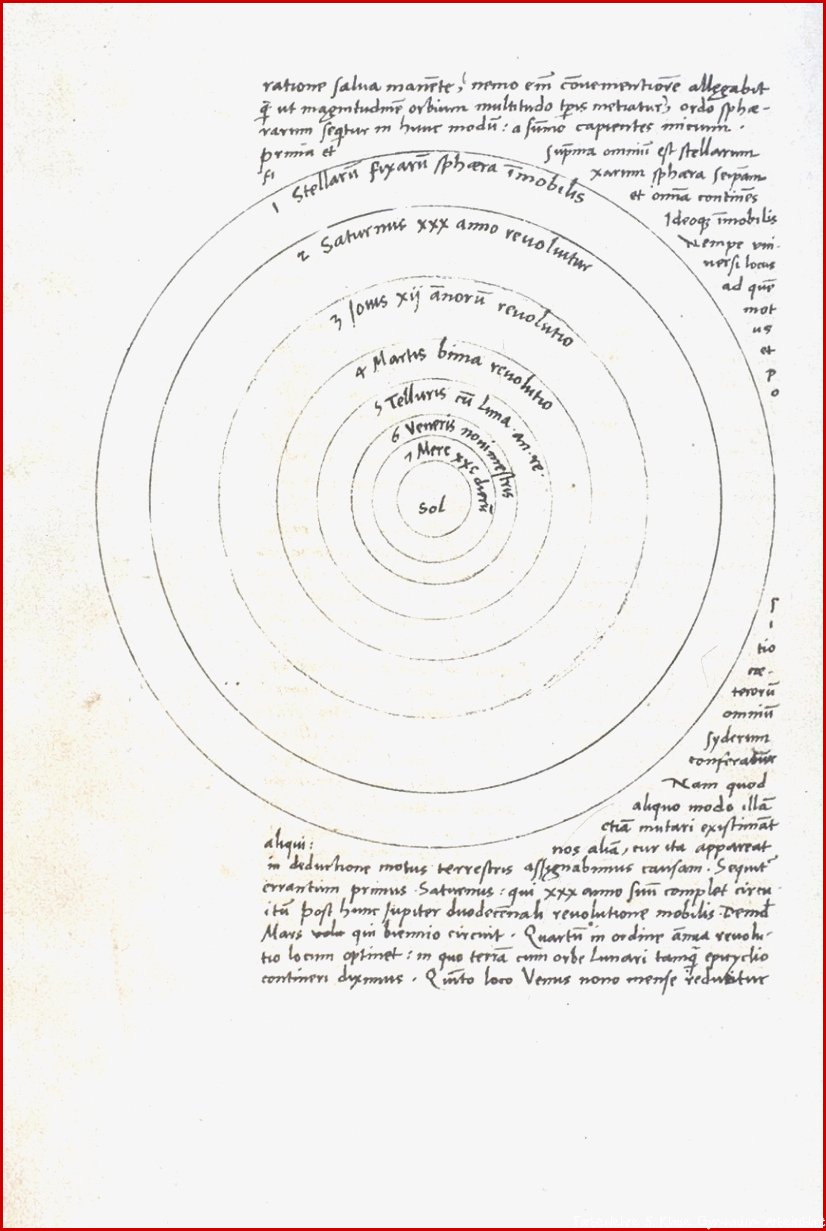 ratione salua manēte, nemo em̄ cōuenientiorē allegabit
q̄ ut magnitudinē orbium multitudo tp̄is metiatur, ordo sphæ-
rarum seq̄tur in hunc modū: a sūmo capientes inicium.
prima et sup̄ma omniū est stellarum
fi xarum sphæra seipām
et omīa continēs
Ideoqꝫ īmobilis
Nempe vni-
uersi locus
ad quē
mot
us
et
p
o
s
i
tio
cæ-
terorū
omniū
syderum
conferatur
Nam quod
aliquo modo illā
etiā mutari existimāt
aliqui: nos aliā, cur ita appareat
in deductione motus terrestris assignabimus causam. Sequit᷑
errantium primus Saturnus: qui xxx anno suū complet circu-
itū post hunc Jupiter duodecēnali revolutione mobilis Deīd
Mars qui biennio circuit. Quartū in ordine ānua revolu-
tio locum optinet: in quo terrā cum orbe Lunari tamq̄ epicyclio
contineri diximus. Quīto loco Venus nono mense reducitur
1 Stellarū fixarū sphæra īmobilis
2 Saturnus xxx anno revoluitur
3 Jouis xij ānorū revolutio
4 Martis bima revolutio
5 Telluris cū Luna an. re.
6 Veneris nonimestris
7 Merc xxc dierū
Sol